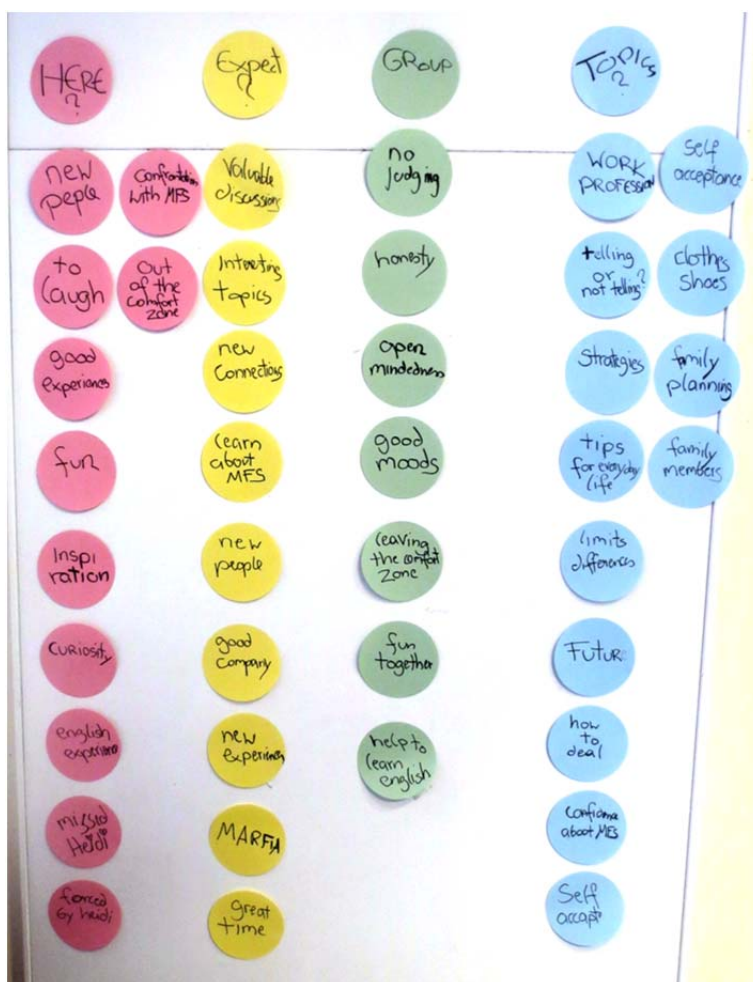 HERE
?
new
peple
Confrontation
with MFS
to
laugh
out
of the
comfort
zone
good
experiences
fun
Inspi
ration
CURIOSITY
english
experience
missed
Heidi
forced
by heidi
Expect
?
Valuable
discussions
Interesting
topics
new
Connections
learn
about
MFS
new
people
good
company
new
experiences
MARFIA
great
time
GROUP
no
judging
honesty
open
mindedness
good
moods
leaving
the comfort
zone
fun
together
help to
learn
english
TOPICS
?
WORK
PROFESSIONAL
self
acceptance
telling
or
not telling?
clothes
shoes
Strategies
family
planning
tips
for everyday
life
family
members
limits
differences
FUTURE
how
to
deal
about MFS
Self
accept